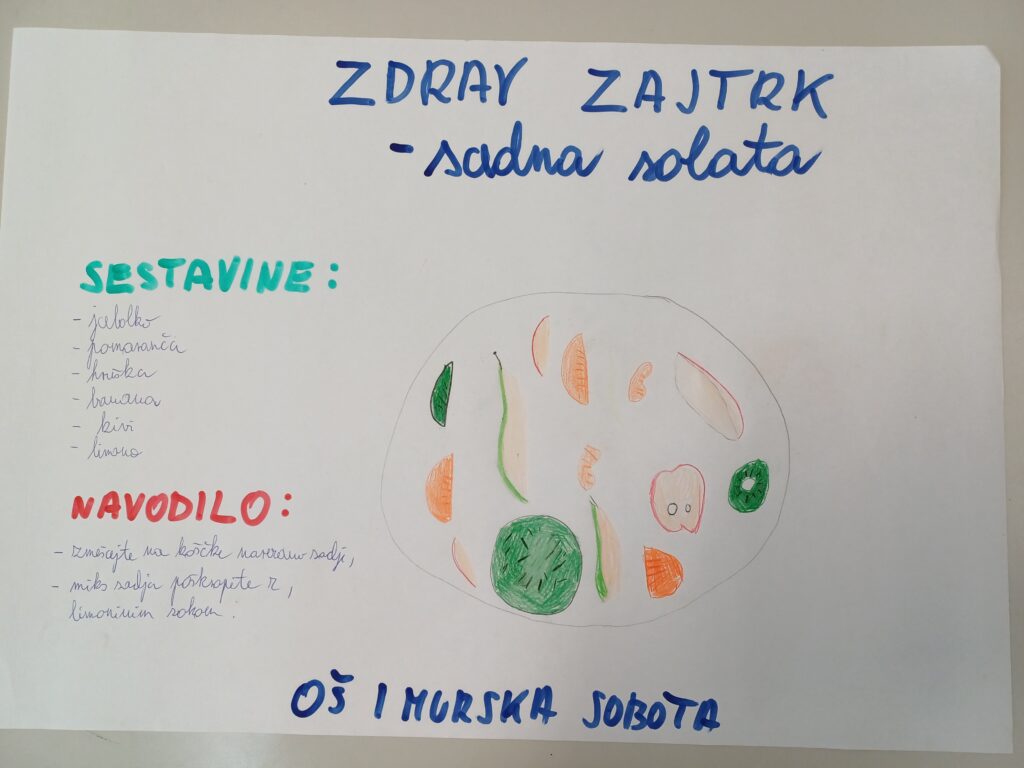 ZDRAV ZAJTRK
- sadna solata
SESTAVINE:
- jabolko
- pomaranča
- hruška
- banana
- kivi
- limona
NAVODILO:
- zmešajte na koščke narezano sadje,
- miks sadja poškropite z,
limoninim sokom.
OŠ I MURSKA SOBOTA